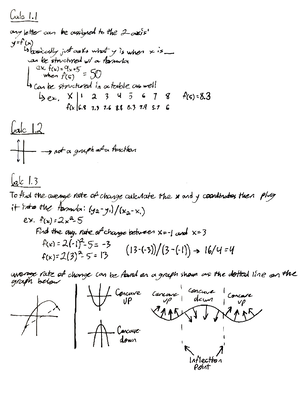 Calc 1.1
any letter can be assigned to the 2 axis'
y=f(x)
↳ basically just asks what y is when x is __
can be structured w/ a formula
ex. f(x)=9x+5
when f(5) = 50
↳ Can be structured in a table as well
↳ ex. X 1 2 3 4 5 6 7 8 f(5)=8.3
f(x)
Calc 1.2
→ not a graph of a function
Calc 1.3
To find the average rate of change calculate the x and y coordinates then plug
it into the formula: (y₂-y₁)/(x₂-x₁)
ex. f(x)=2x²-5
Find the avg. rate of change between x=-1 and x=3
f(x)=2(-1)²-5=-3
f(x)=2(3)²-5=13 (13-(-3))/(3-(-1)) → 16/4=4
average rate of change can be found on a graph shown as the dotted line on the
graph below
Concave UP
Concave down
Concave UP
Concave down
Concave UP
Inflection Point